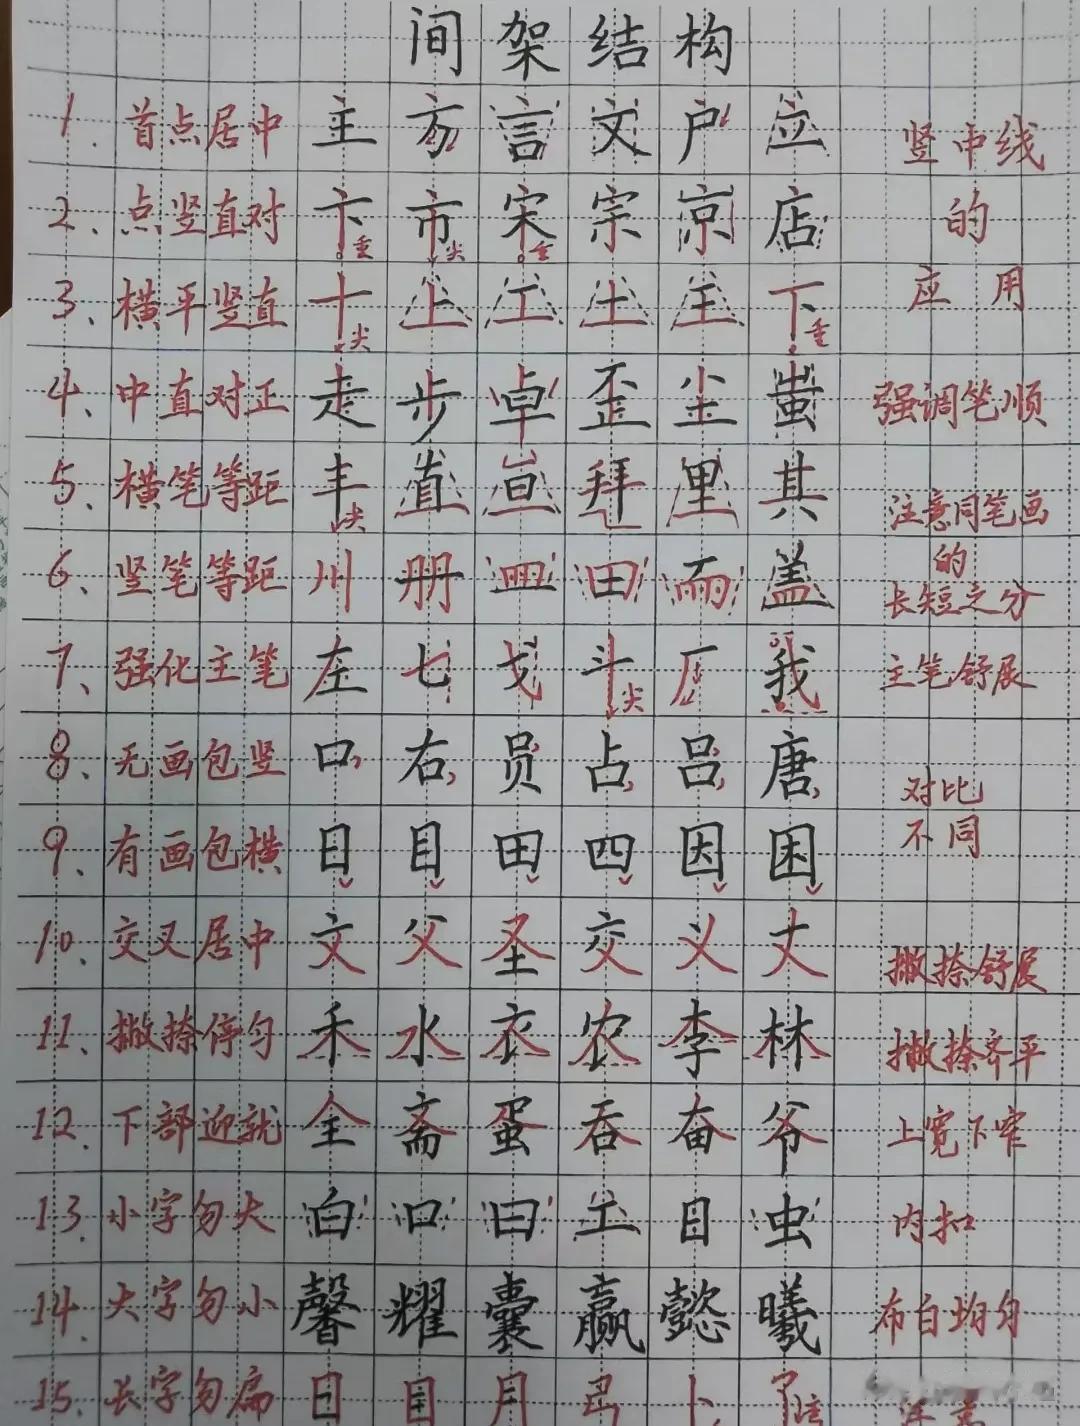 间架结构
1. 首点居中 主 方 言 文 户 立 竖中线
2. 点竖直对 卞 市 宋 宗 京 店 的
垂 尖 垂
3. 横平竖直 十 上 工 土 王 下 应用
尖 垂
4. 中直对正 走 步 卓 歪 尘 蚩 强调笔顺
5. 横笔等距 丰 直 亘 拜 里 其 注意同笔画
尖
6. 竖笔等距 川 册 皿 田 而 盖 的
长短之分
7. 强化主笔 左 七 戈 斗 厂 我 主笔舒展
尖
8. 无画包竖 口 右 员 占 吕 唐 对比
9. 有画包横 日 目 田 四 因 困 不同
10. 交叉居中 文 父 圣 交 义 丈 撇捺舒展
11. 撇捺停匀 禾 水 衣 农 李 林 撇捺齐平
12. 下部迎就 全 斋 蛋 吞 奋 爷 上宽下窄
13. 小字勿大 白 口 曰 工 目 虫 内扣
14. 大字勿小 馨 耀 囊 赢 懿 曦 布白均匀
15. 长字勿扁 日 目 月 卜